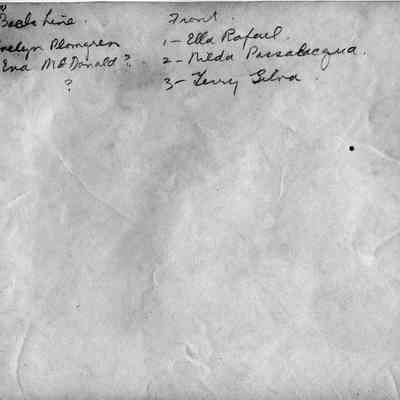 Back Line.
Evelyn Blomgren
Eva McDonald ?
?
Front.
1- Ella Rafael.
2- Nilda Passalacqua.
3- Terry Silva.